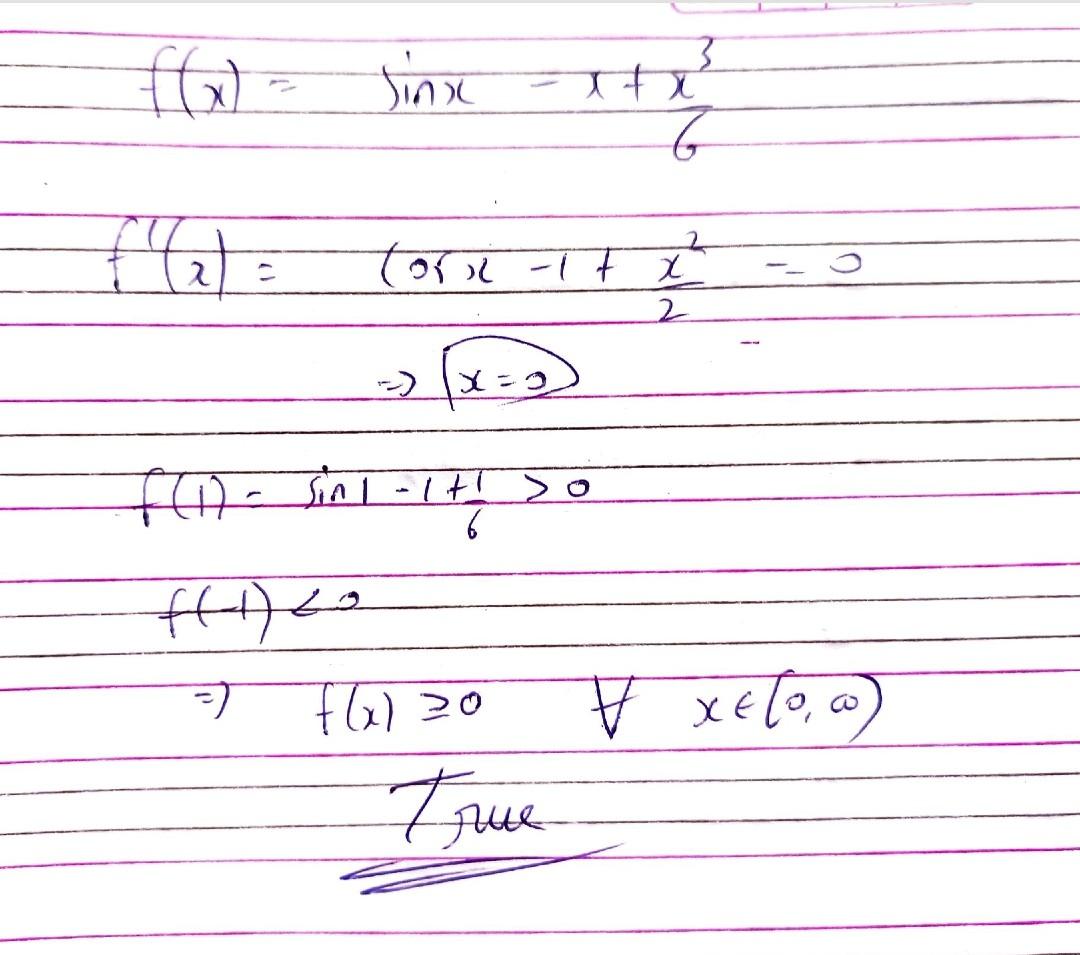 f(x) = sinx - x + x³/6
f'(x) = cosx - 1 + x²/2 = 0
=> x = 0
f(1) = sin1 - 1 + 1/6 > 0
f(-1) < 0
=> f(x) ≥ 0 ∀ x ∈ [0, ∞)
True